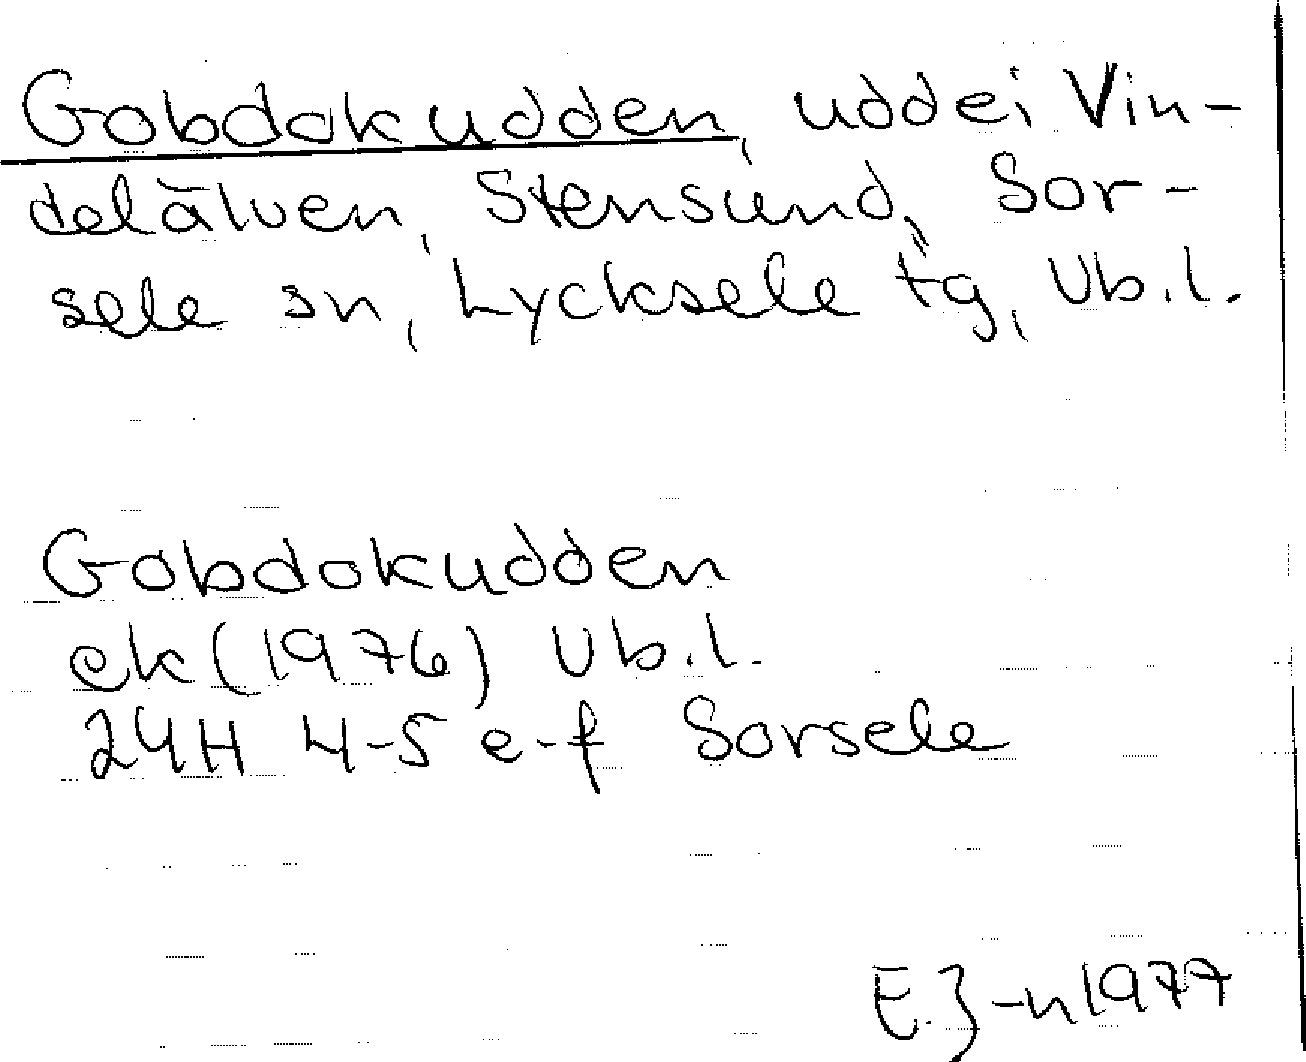 Gobdokudden, udde i Vin-
delälven, Stensund, Sor-
sele sn, Lycksele tg, Vb.l.
Gobdokudden
ek(1976) Vb.l.
24H 4-5 e-f Sorsele
E.J-n 1977